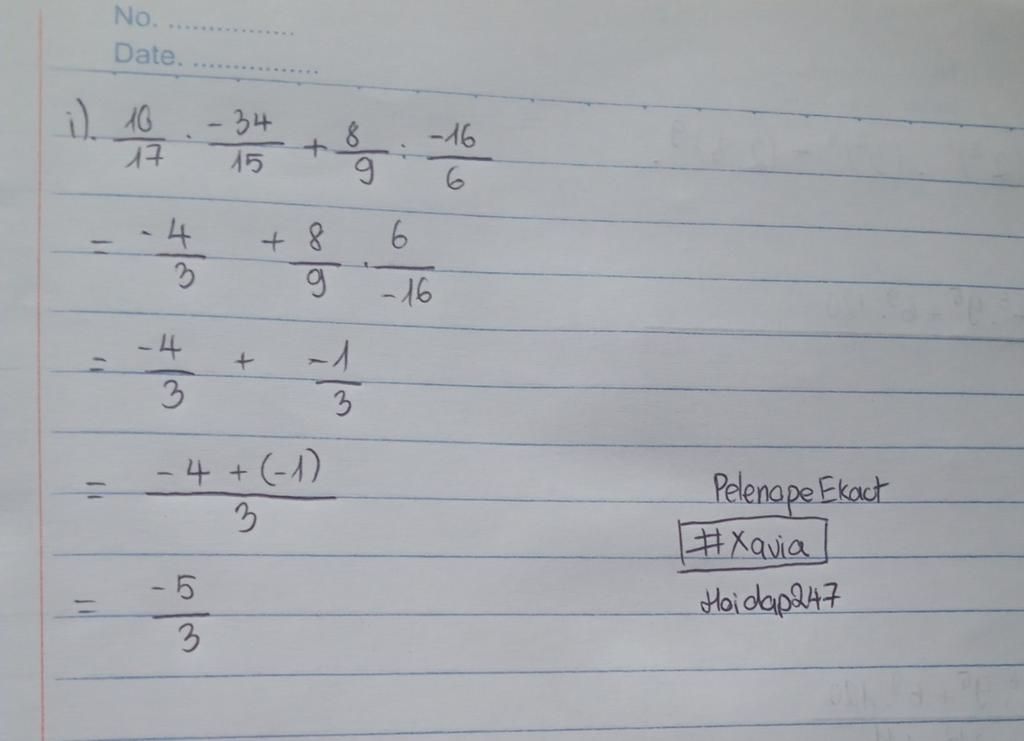 No. ...............
Date. ...............
i). 10/17 . -34/15 + 8/9 : -16/6
= -4/3 + 8/9 . 6/-16
= -4/3 + -1/3
= -4 + (-1)/3
= -5/3
PelenopeEkact
#Xavia
Hoidap247